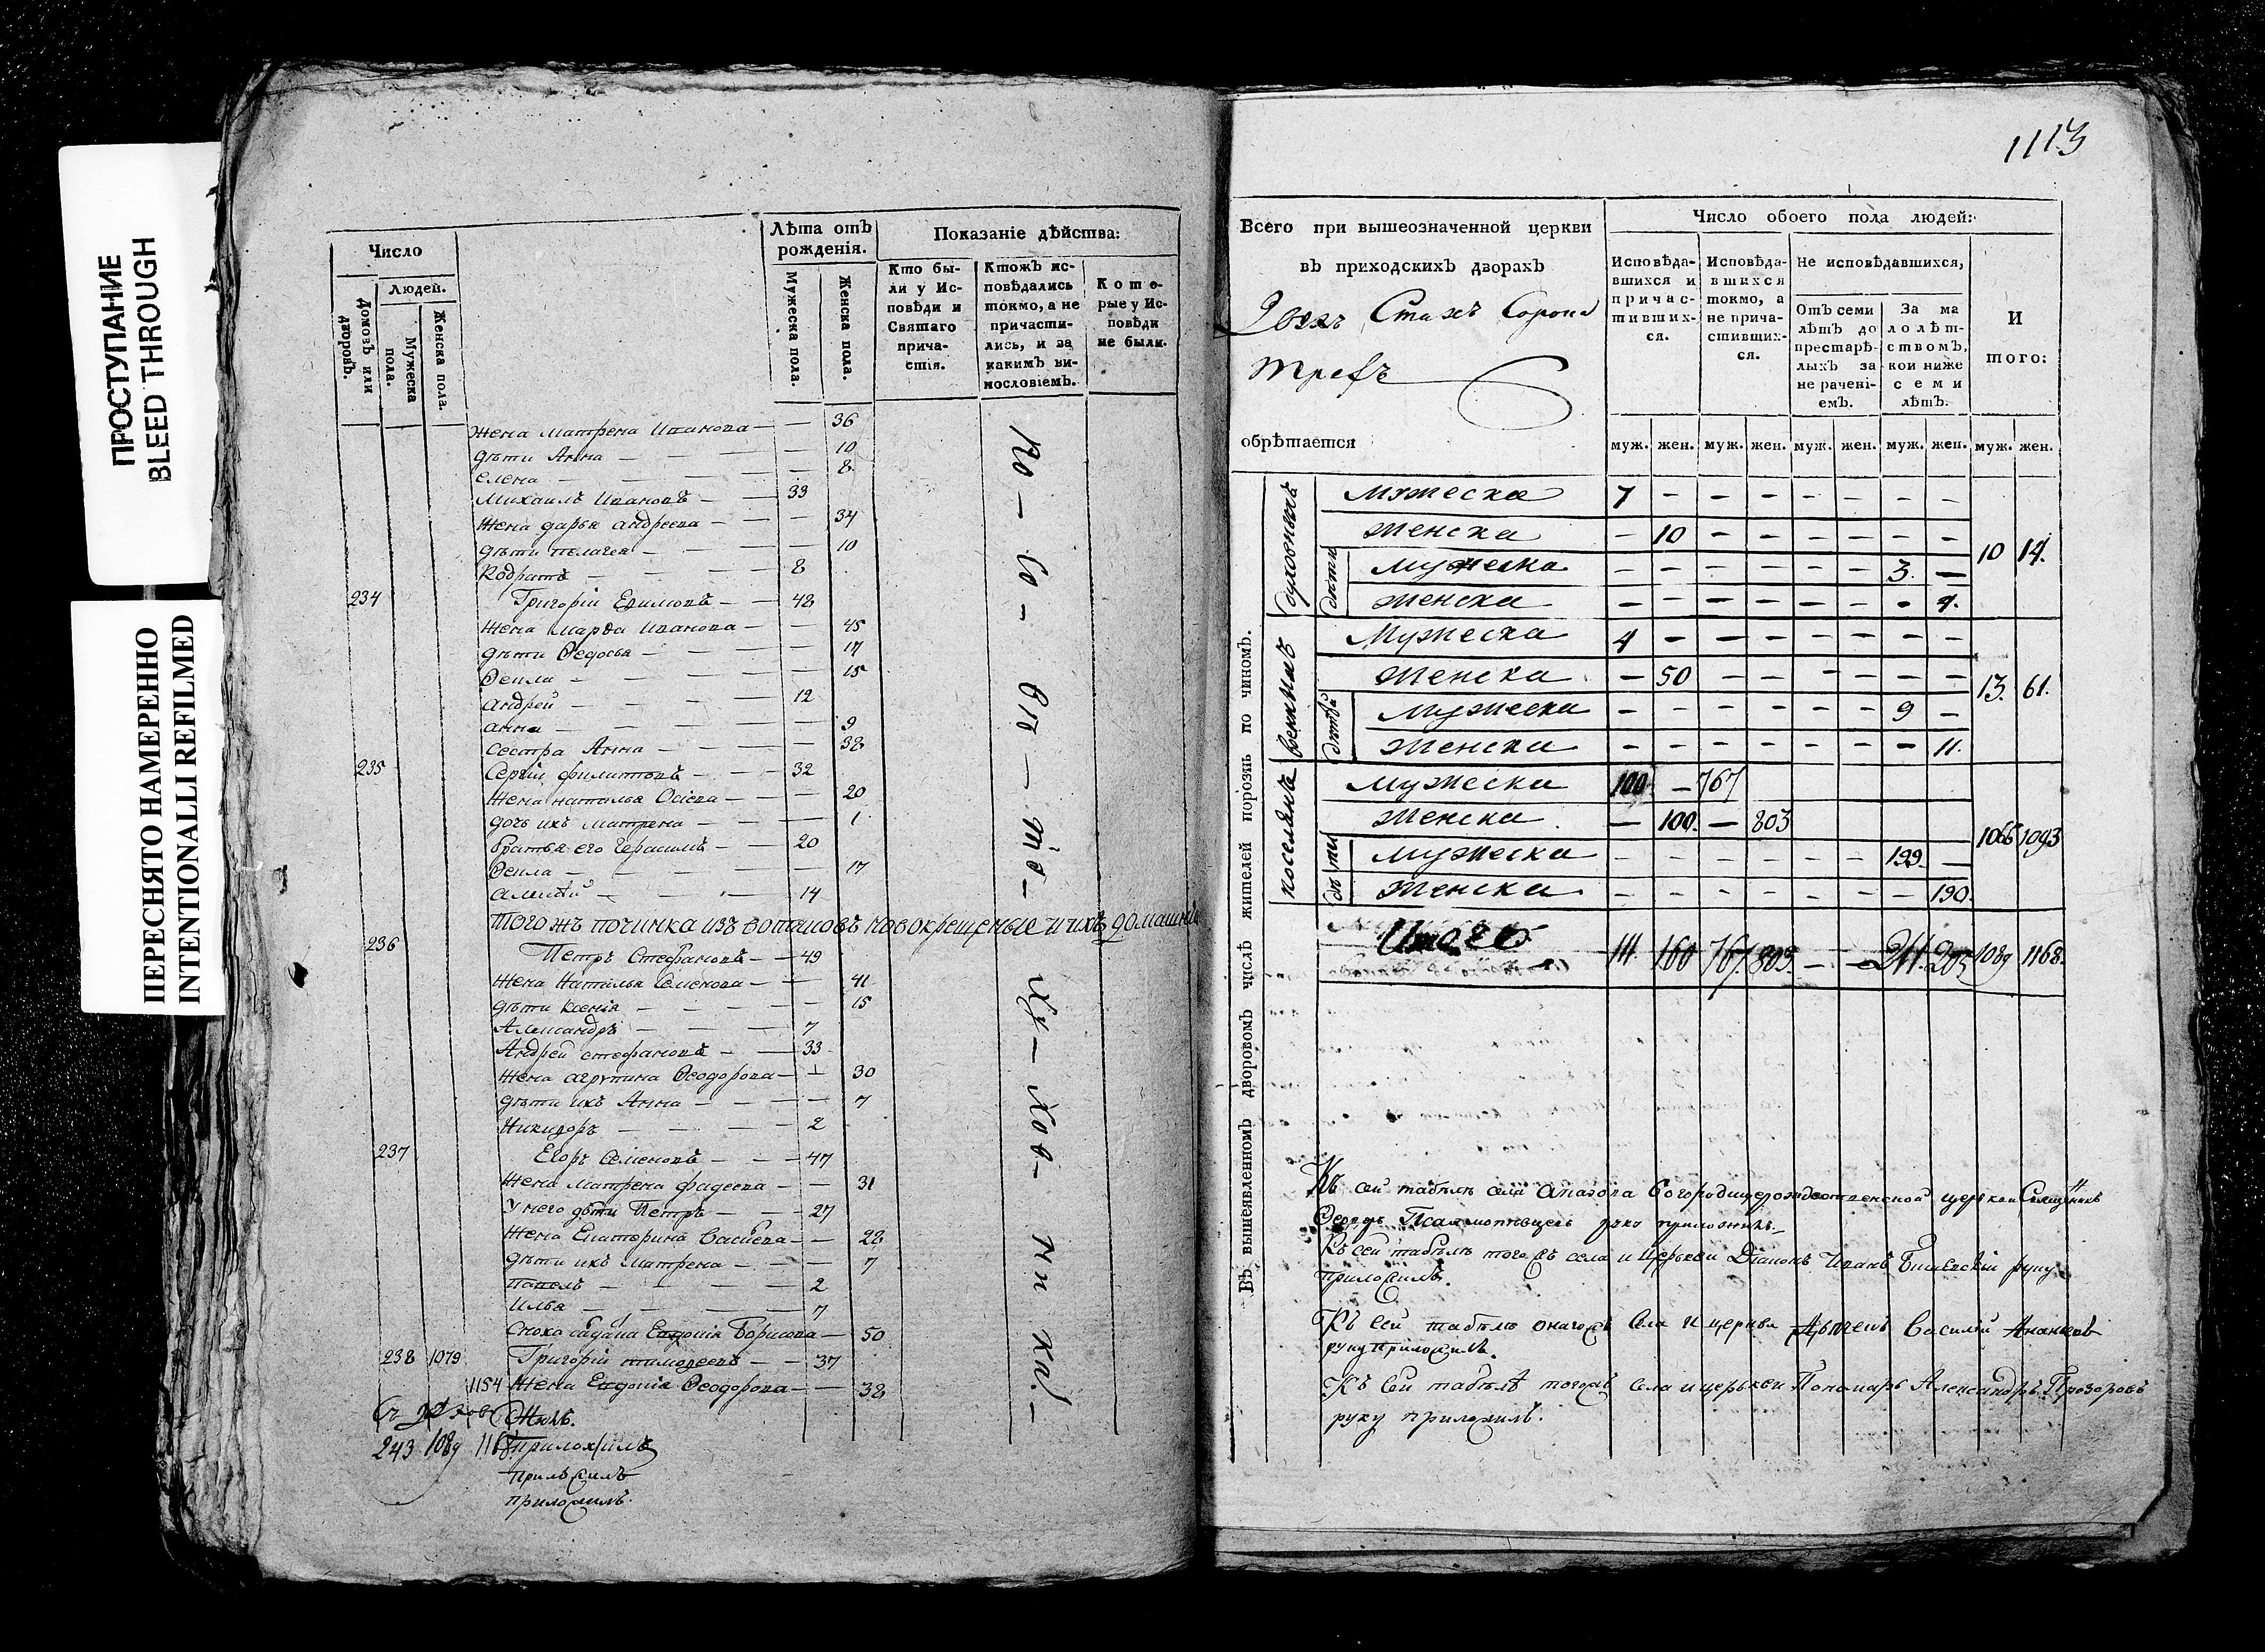 ПРОСТУПАНИЕ
BLEED THROUGH
ПЕРЕСНЯТО НАМЕРЕННО
INTENTIONALLI REFILMED
Число
Людей.
Домовъ или дворовъ.
Мужеска пола.
Женска пола.
Лѣта отъ рожденія.
Мужеска пола.
Женска пола.
Показаніе дѣйства:
Кто бы-
ли у Ис-
повѣди и
Святаго
прича-
стія.
Ктожъ ис-
повѣдались
токмо, а не
причасти-
лись, и за
какимъ ви-
нословіемъ.
Кото-
рые у Ис-
повѣди
не были.
жена Матрена Иванова — — 36
дѣти Анна — — 10
Елена — — 8
Михаилъ Ивановъ — 33
жена дарья андреева — — 34
дѣти пелагея — — 10
Кодратъ — 8
234 Григорій Ефимовъ — 48
жена марѳа Иванова — — 45
дѣти Ѳедосья — — 17
Ѳекла — — 15
андрей — 12
анна — — 9
сестра Анна — — 38
235 Сергій филиповъ — 32
жена наталья Осіева — — 20
дочь ихъ матрена — — 1
братья его Герасимъ — 20
Ѳекла — — 17
— 14
того жъ починка изъ вотяковъ новокрещеные и ихъ домашніе
236 Петръ Стефановъ — 49
жена Наталья Семенова — — 41
дѣти ксенія — — 15
Александръ — 7
Андрей стефановъ — 33
жена агрупина Ѳеодорова — — 30
дѣти ихъ Анна — — 7
Никифоръ — 2
237 Егоръ Семеновъ — 47
жена матрена фадеева — — 31
У него дѣти Петръ — 27
жена Екатерина — — 28
дѣти ихъ матрена — — 7
павелъ — 2
Илья — 7
сноха Евдокія Борисова — 50
238 1079 Григорій тимофеевъ — 37
1154 жена Евдокія Ѳеодорова — — 38
243 1089 1168 приложилъ
приложилъ
приложилъ.
1113
Всего при вышеозначенной церкви
въ приходскихъ дворахъ
Двухъ Стахъ Сорока
трехъ
обрѣтается
Число обоего пола людей:
Исповѣда-
вшихся и
причас-
тивших-
ся.
Исповѣда-
вшихся
токмо, а
не прича-
стивших-
ся.
Не исповѣдавшихся,
Отъ семи
лѣтъ до
престарѣ-
лыхъ за
не рачені-
емъ.
За ма
лолѣт-
ствомъ,
кои ниже
семи
лѣтъ.
И
того:
муж. жен. муж. жен. муж. жен. муж. жен. муж. жен.
Въ вышеявленномъ дворовомъ числѣ жителей порознь по чиномъ.
духовныхъ
мужеска 7 — — — — — — —
женска — 10 — — — — — —
10 14.
дѣти
мужеска — — — — — — 3. —
женска — — — — — — — 4.
военныхъ
Мужеска 4 — — — — — — —
женска — 50 — — — — — —
13. 61.
дѣтей
мужеска — — — — — — 9 —
женска — — — — — — — 11.
поселянъ
мужеска 100 — 767
женска — 100. — 803
1066 1093
дѣти
мужеска — — — — — — 199. —
женска — — — — — — — 190.
Итого 111. 160 767. 803. — — 211. 205 1089 1168.
Къ сей табели села Богородицерождественской церкви Священникъ
Ѳеодоръ руку приложилъ
Къ сей табелѣ того жъ села и церкви Діаконъ Иванъ руку
приложилъ.
Къ сей табелѣ онагожъ села и церкви дьячекъ Василій Ананьевъ
руку приложилъ.
Къ сей табелѣ тогожъ села и церькви Пономарь Александръ Прозоровъ
руку приложилъ.